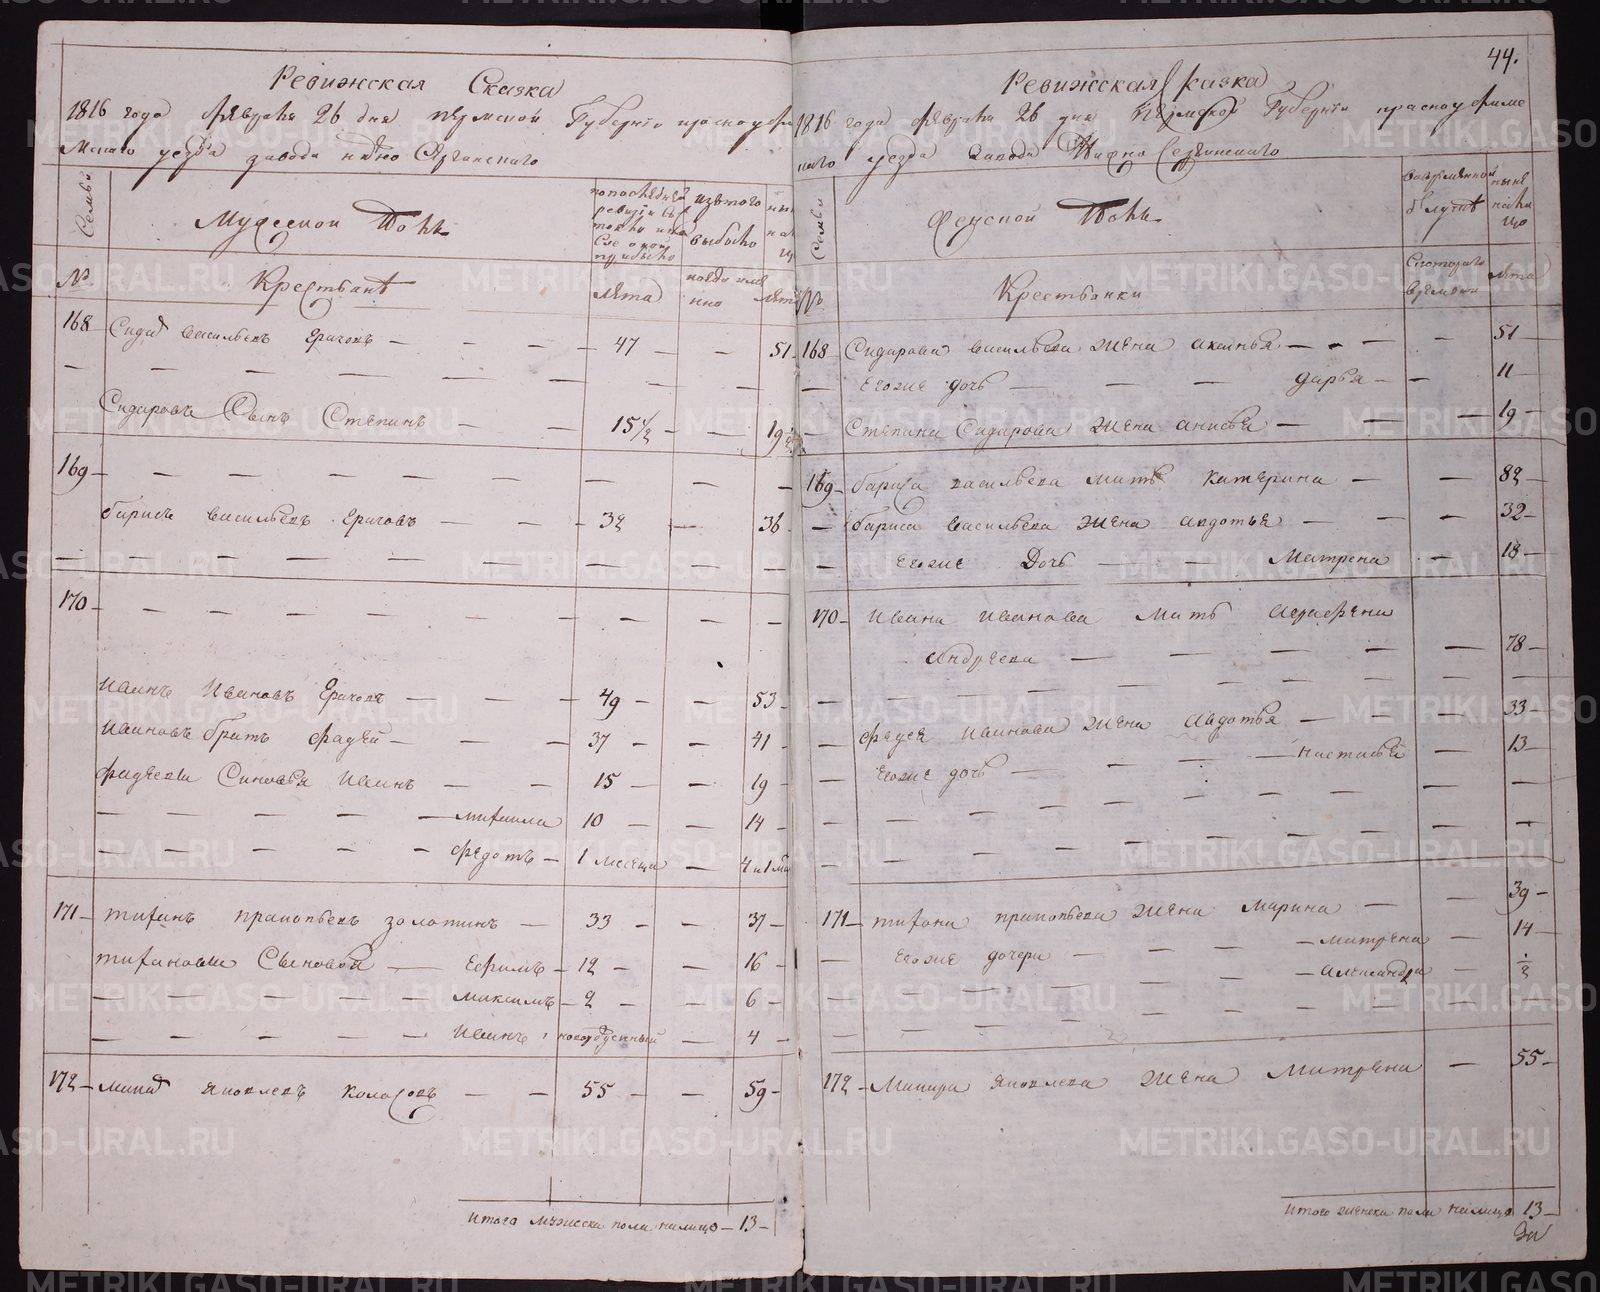 Ревижская Сказка
1816 года февраля 26 дня пермской Губернiи красноуфи
мскаго уезда завода нижно Сергинскаго
Семьи
Мужеской Полъ
изтого выбыло
№
Крестьянѣ
лѣта
лѣта
168 Сидаръ васильевъ Ерачовъ — — — — 47 — — 51
Сидаровъ Сынъ Степанъ — — 15 1/2 — — 19 1/2
169 — — — — — — — — —
барисъ васильевъ Ерачовъ — — — 32 — 36
— — — — — — — — —
170 — — — — — — — — —
Иванъ Ивановъ Ерачовъ — — — 49 — — 53
Ивановъ братъ фадей — — — 37 — — 41
фадеевы Синовья Иванъ — — 15 — — 19
— — — — — михаила 10 — — 14
— — — — — федотъ — 1 месеца — 4 и 1 ме
171 — тиханъ пракопьевъ золотинъ — 33 — — 37
тихановы Сыновья — Ефимъ — 12 — — 16
— — — — — максимъ — 2 — — 6
— — — — — Иванъ новорожденный — 4
172 — макаръ яковлевъ Колосовъ — — 55 — — 59
Итого мужеска пола налицо — 13 —
44.
Ревижская Сказка
1816 года февраля 26 дня Пермской Губернiи красноуфиме
каго уезда Завода Нижно Сергинскаго
Семьи
Женской Полъ
вовременной отлучке
ныне налицо
№
Крестьянки
Скотораго времени
лѣта
168 Сидарова васильева жена акилинья — — — — 51
— Егоже дочь — — — дарья — — 11
— Степана Сидарова жена анисья — — — 19
169 — бариса васильева мать катерина — — 82
— бариса васильева жена авдотья — — — 32
— Егоже Дочь — — Матрена — 18
170 — Ивана Иванова мать Аграфена
Андреева — — — — — 78
— — — — — — — — —
— фадея Иванова жена Авдотья — — — 33
— Егоже дочь — — — — настасья — 13
— — — — — — — — —
— — — — — — — — —
171 — тихона пракопьева жена Марина — — 39
— Егоже дочери — — — — матрена — 14
— — — — — — александра — 1/2
— — — — — — — — —
172 — Макара яковлева жена Матрена — 55
Итого женска пола налицо 13 —